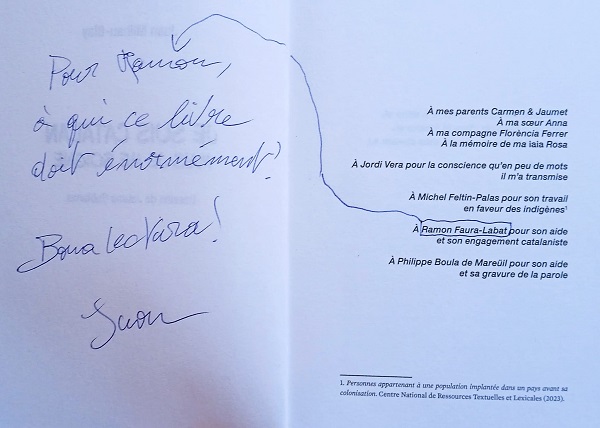 Pour Ramon,
à qui ce livre
doit énormément !
Bona lectura !
À mes parents Carmen & Jaumet
À ma sœur Anna
À ma compagne Florència Ferrer
À la mémoire de ma iaia Rosa
À Jordi Vera pour la conscience qu'en peu de mots
il m'a transmise
À Michel Feltin-Palas pour son travail
en faveur des indigènes¹
À Ramon Faura-Labat pour son aide
et son engagement catalaniste
À Philippe Boula de Mareüil pour son aide
et sa gravure de la parole
1. Personnes appartenant à une population implantée dans un pays avant sa
colonisation. Centre National de Ressources Textuelles et Lexicales (2023).